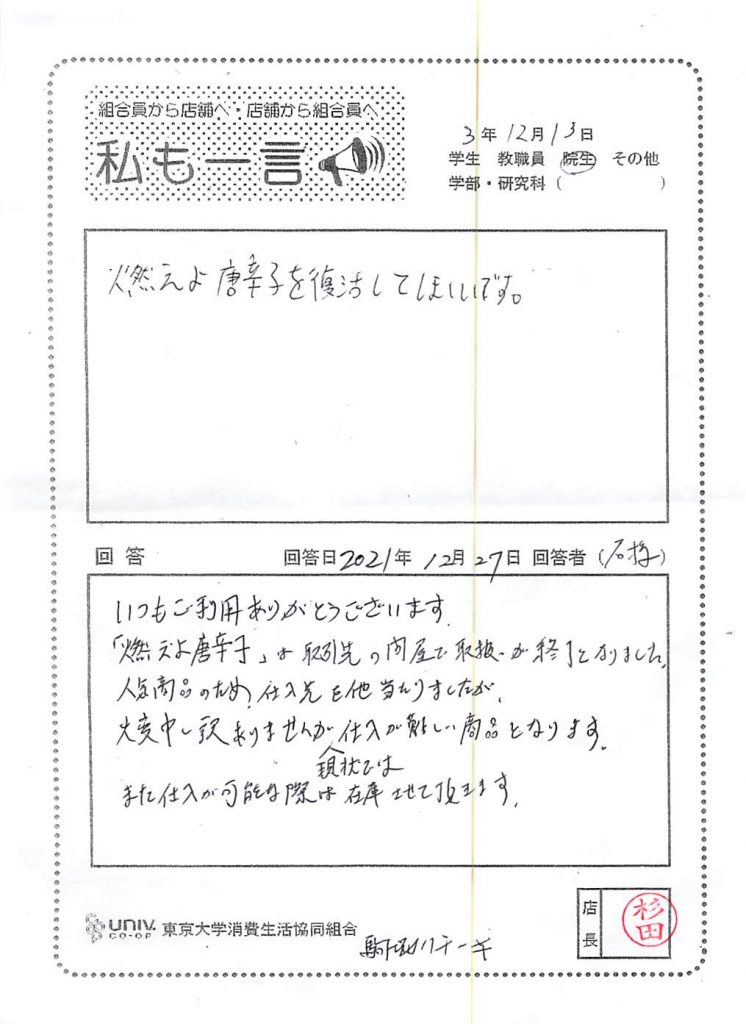 組合員から店舗へ・店舗から組合員へ
私も一言
3年12月13日
学生 教職員 院生 その他
学部・研究科（ ）
燃えよ唐辛子を復活してほしいです。
回答 回答日2021年12月27日 回答者（石揥）
いつもご利用ありがとうございます.
「燃えよ唐辛子」は取引先の問屋で取扱いが終了となりました.
人気商品のため、仕入先を他当たりましたが、
大変申し訳ありませんが現状では仕入が難しい商品となります.
また仕入が可能な際は在庫させて頂きます.
UNIV. CO-OP 東京大学消費生活協同組合
店長 杉田